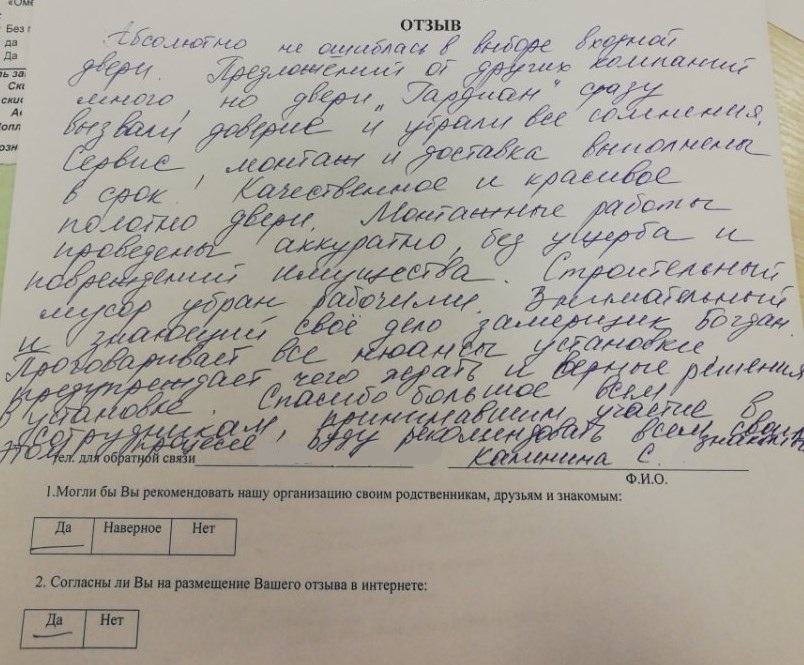 "Оме
Без п
да
Да
ль за
Ски
ски
Ак
опл
озн
ОТЗЫВ
Абсолютно не ошиблась в выборе входной
двери. Предложений от других компаний
много, но двери „Гардиан" сразу
вызвали доверие и убрали все сомнения.
Сервис, монтаж и доставка выполнены
в срок! Качественное и красивое
полотно двери. Монтажные работы
проведены аккуратно, без ущерба и
повреждений имущества. Строительный
мусор убран рабочими. Внимательный
и знающий своё дело замерщик Богдан.
Проговаривает все нюансы установки
предупреждает чего ждать и верные решения
в установке. Спасибо большое всем
сотрудникам, принимавшим участие в
этом процессе! Буду рекомендовать всем своим знакомым
тел. для обратной связи Калинина С.
Ф.И.О.
1.Могли бы Вы рекомендовать нашу организацию своим родственникам, друзьям и знакомым:
Да Наверное Нет
2. Согласны ли Вы на размещение Вашего отзыва в интернете:
Да Нет